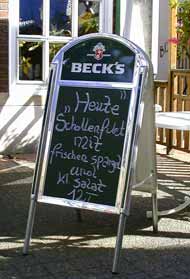 BECK'S
„Heute"
Schollenfilet
mit
frischen Spargel
und
kl Salat
12,-